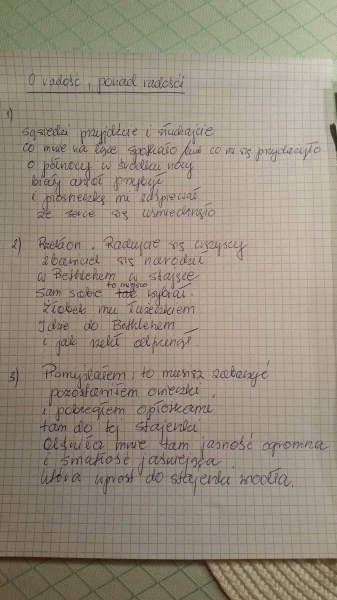 O radość, ponad radości
1)
sąsiedzi przyjdźcie i słuchajcie
co mnie na łące spotkało co mi się przydarzyło
o północy w środku nocy
biały anioł przybył
i pioseneczkę mi zaśpiewał
że serce się uśmiechnęło
2) Rzekł on. Radujcie się wszyscy
zbawiciel się narodził
w Bethlehem w stające
Sam sobie to miejsce wybrał
Żłobek mu łóżeczkiem
Idźcie do Bethlehem
i jak rzekł odfrunął.
3) Pomyślałem: to muszę zobaczyć
pozostawiłem owieczki,
i pobiegłem opłotkami
tam do tej stajenki
Olśniła mnie tam jasność ogromna
i światłość jaśniejąca
która wprost do stajenki wiodła.